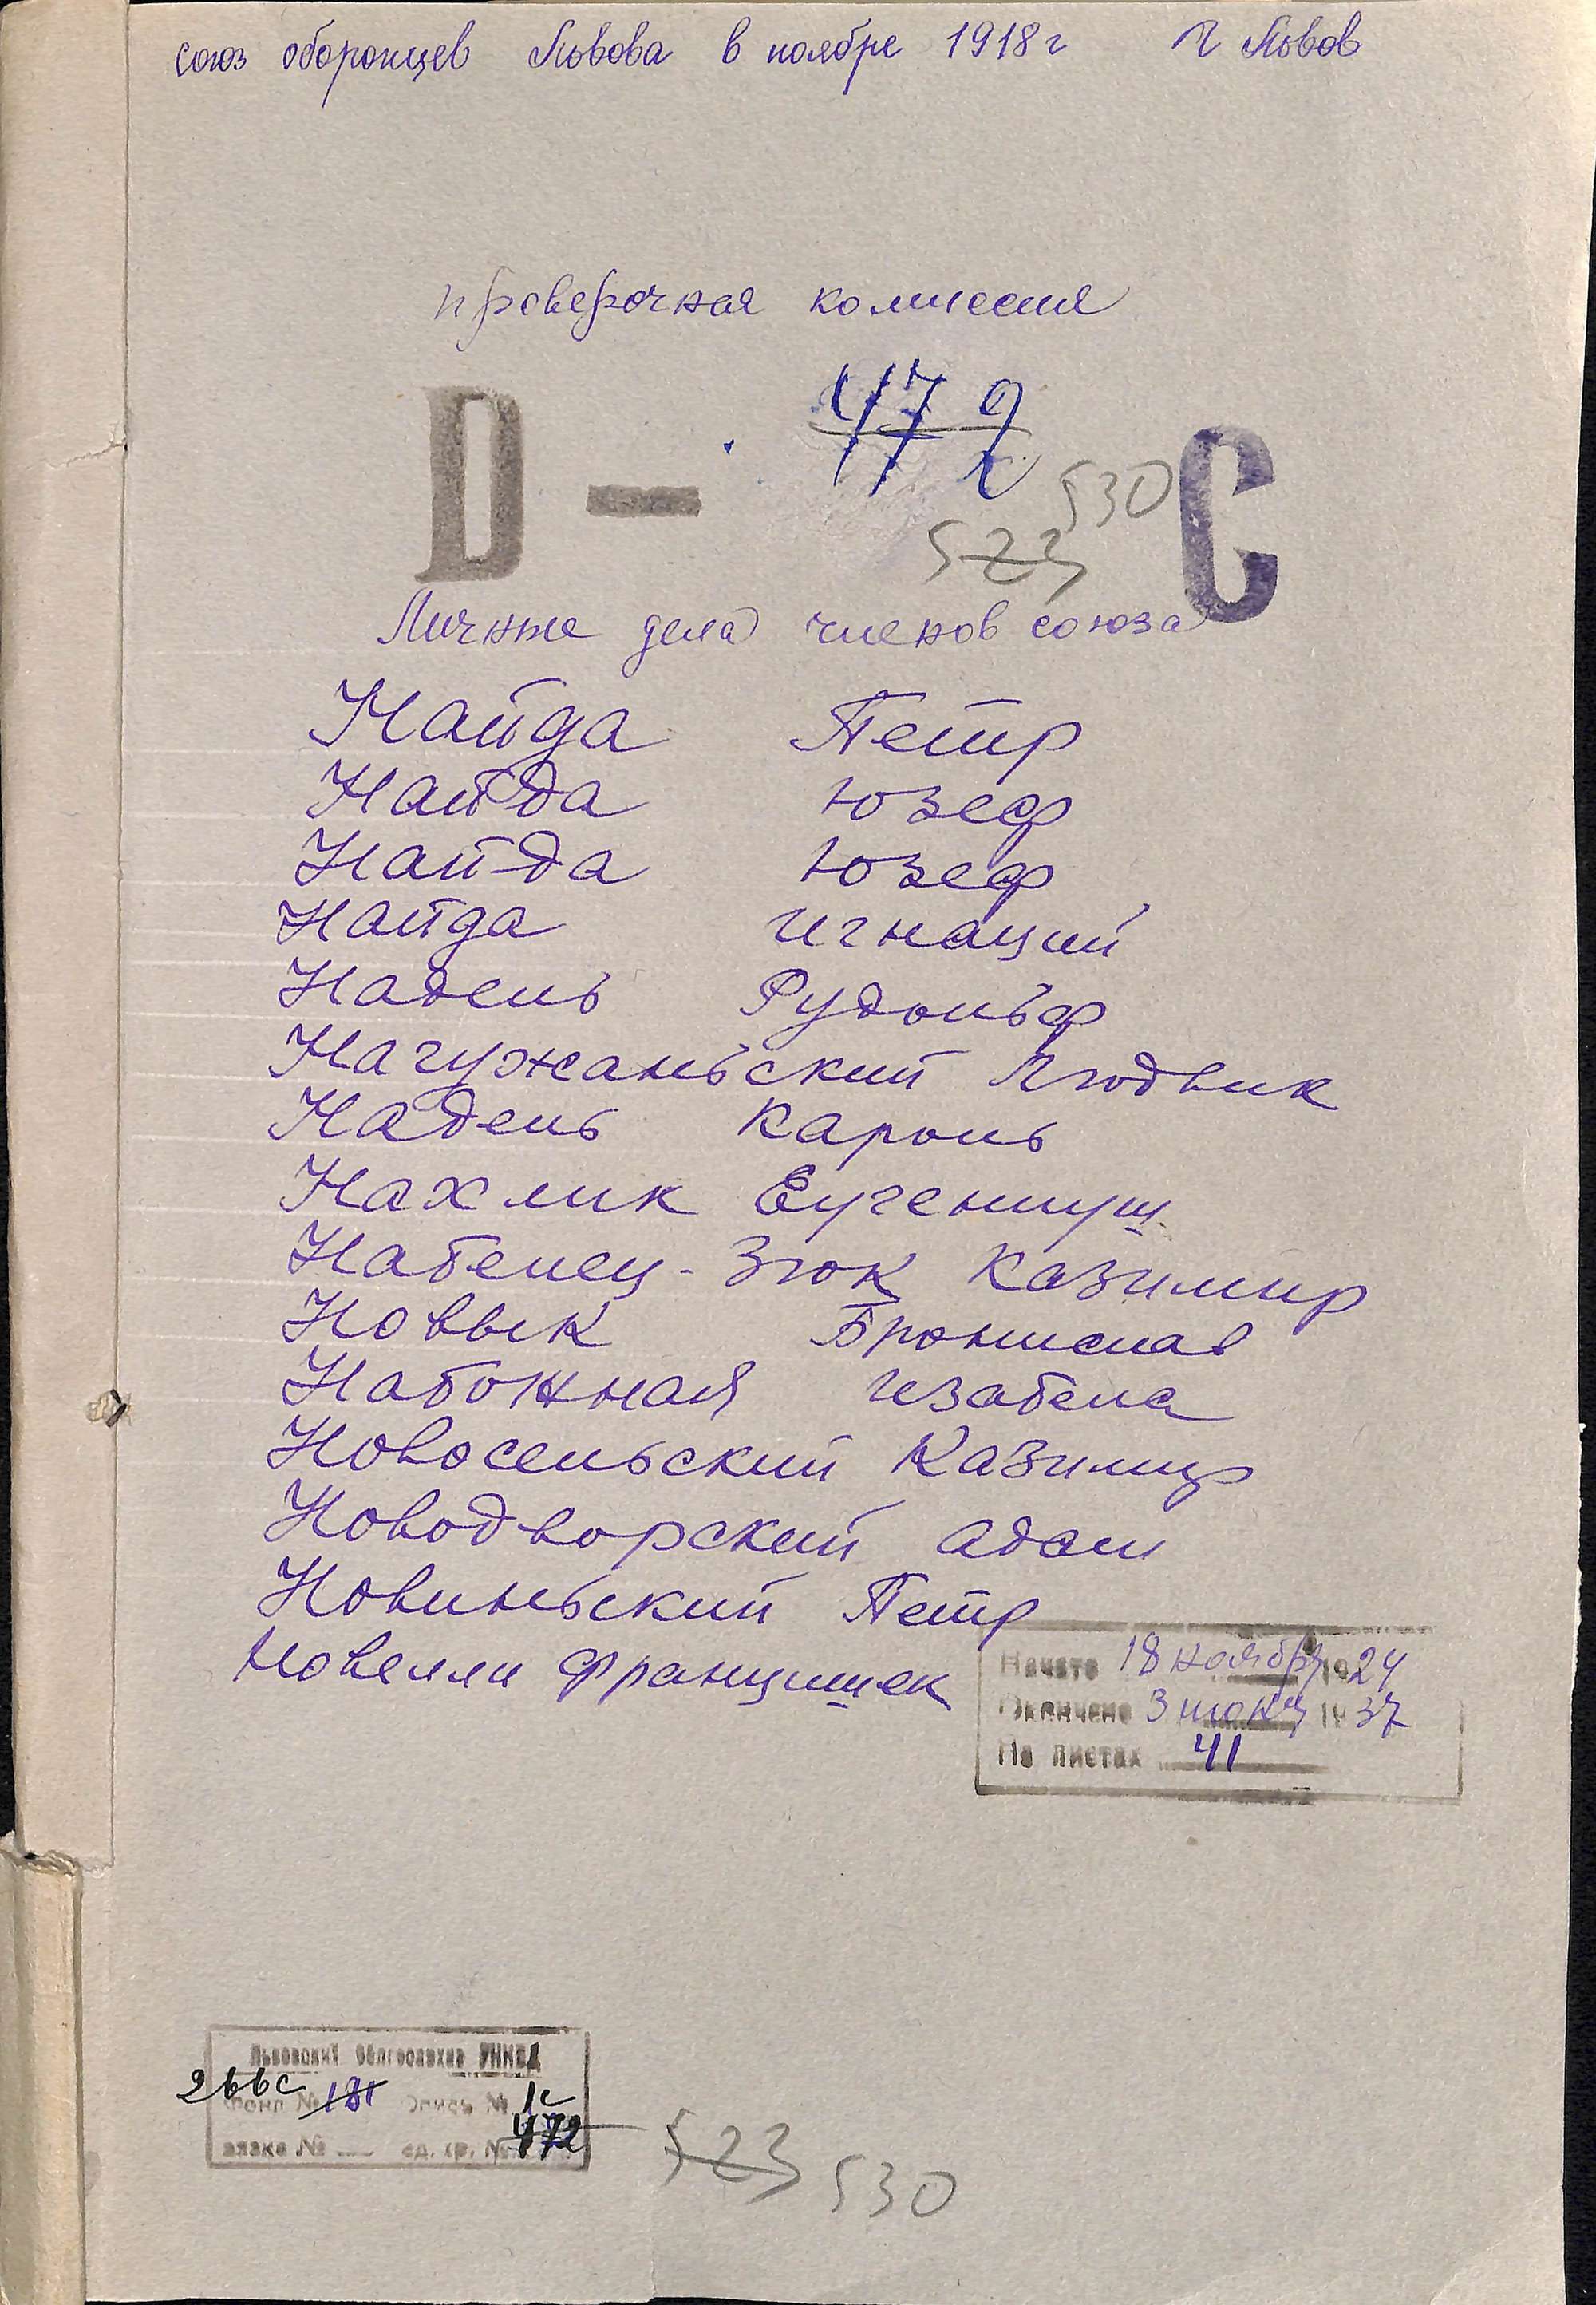 союз оборонцев Львова в ноябре 1918 г г Львов
проверочная комиссия
D — 472 C
530
523
Личные дела членов союза
Найда Петр
Найда Юзеф
Найда Юзеф
Найда Игнаций
Надель Рудольф
Нагужаньский Людвик
Надель Кароль
Нахлик Еугениуш
Набелец-Зюк Казимир
Новык Бронислав
Набожная Изабела
Новосельский Казимир
Новодворский Адам
Новиньский Петр
Новелли Францишек
Начато 18 ноября 1924
Окончено 3 июня 1937
На листах 41
Львовский Облгосархив УНКВД
266с
Фонд № 181 Опись № 1с
вязка № — ед. хр. № 472
523 530